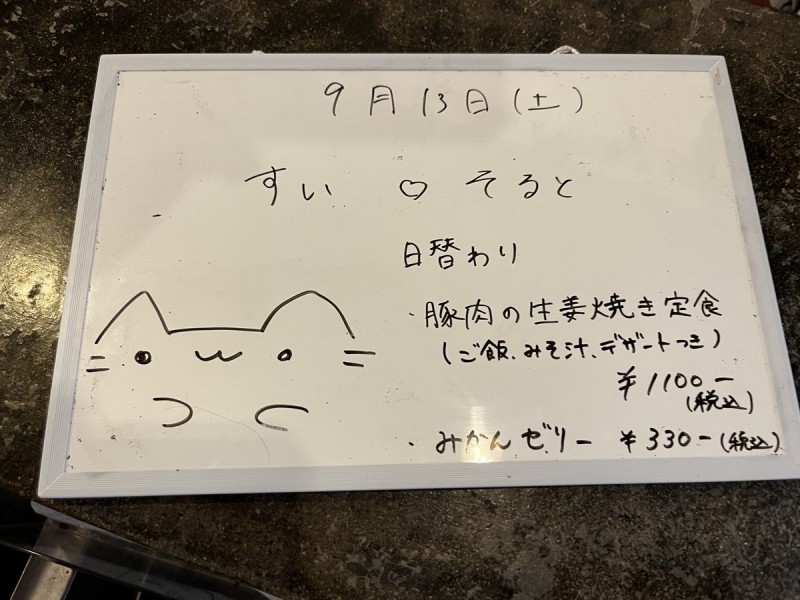 9月13日(土)
すい ♡ そると
日替わり
・豚肉の生姜焼き定食
(ご飯、みそ汁、デザートつき)
¥1100-
(税込)
・みかんゼリー ¥330-(税込)